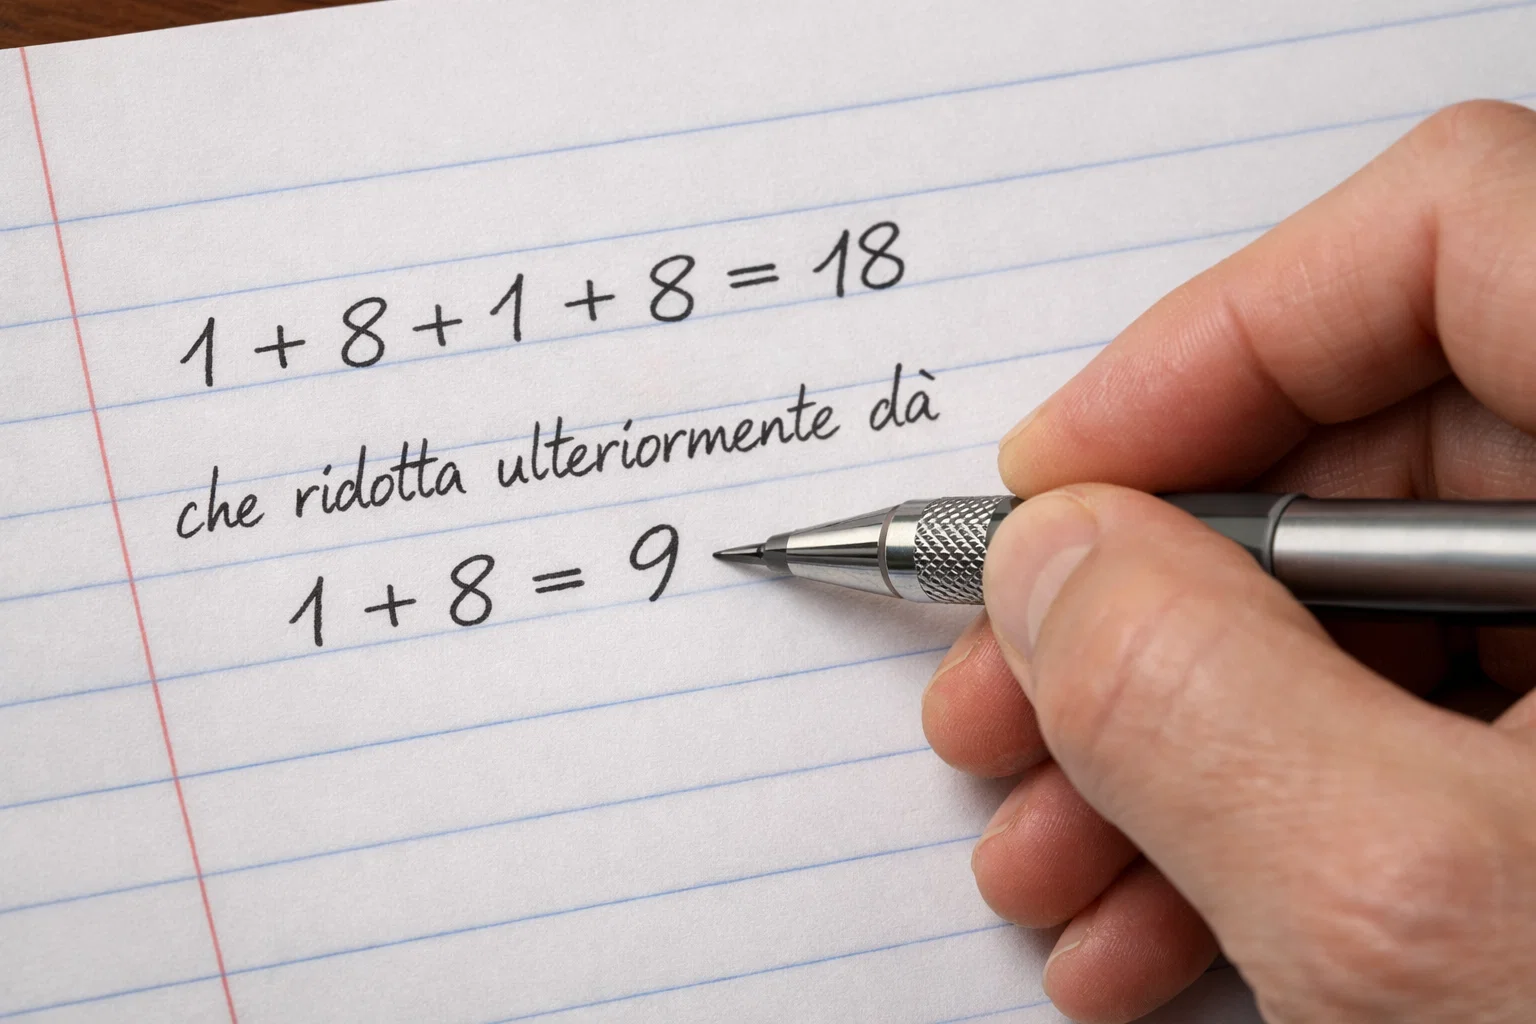 1 + 8 + 1 + 8 = 18
che ridotta ulteriormente dà
1 + 8 = 9